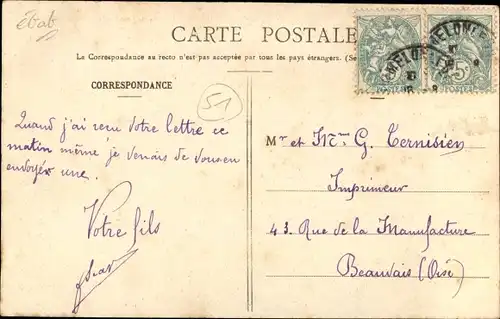 étab
CARTE POSTALE
La Correspondance au recto n'est pas acceptée par tous les pays étrangers. (Se
CORRESPONDANCE
51
Quand j'ai reçu votre lettre ce
matin même je venais de vous en
envoyer une.
Votre fils
Mr et Mme G. Ternisien
Imprimeur
43 Rue de la Manufacture
Beauvais (Oise)